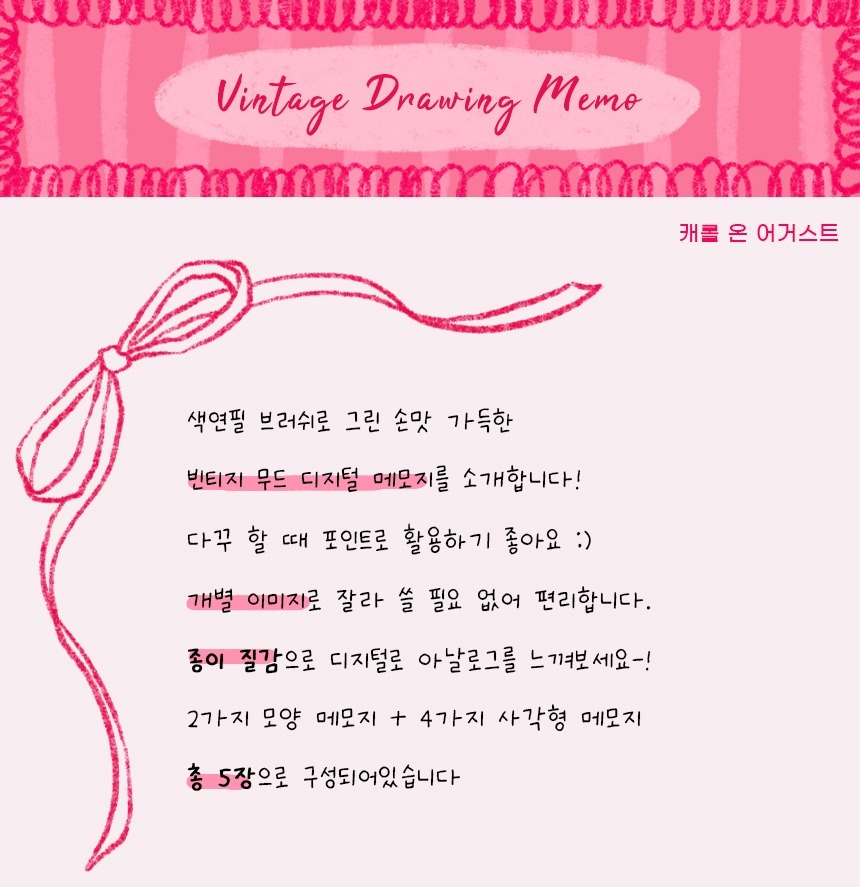 Vintage Drawing Memo
캐롤 온 어거스트
색연필 브러쉬로 그린 손맛 가득한
빈티지 무드 디지털 메모지를 소개합니다!
다꾸 할 때 포인트로 활용하기 좋아요 :)
개별 이미지로 잘라 쓸 필요 없어 편리합니다.
종이 질감으로 디지털로 아날로그를 느껴보세요-!
2가지 모양 메모지 + 4가지 사각형 메모지
총 5장으로 구성되어있습니다